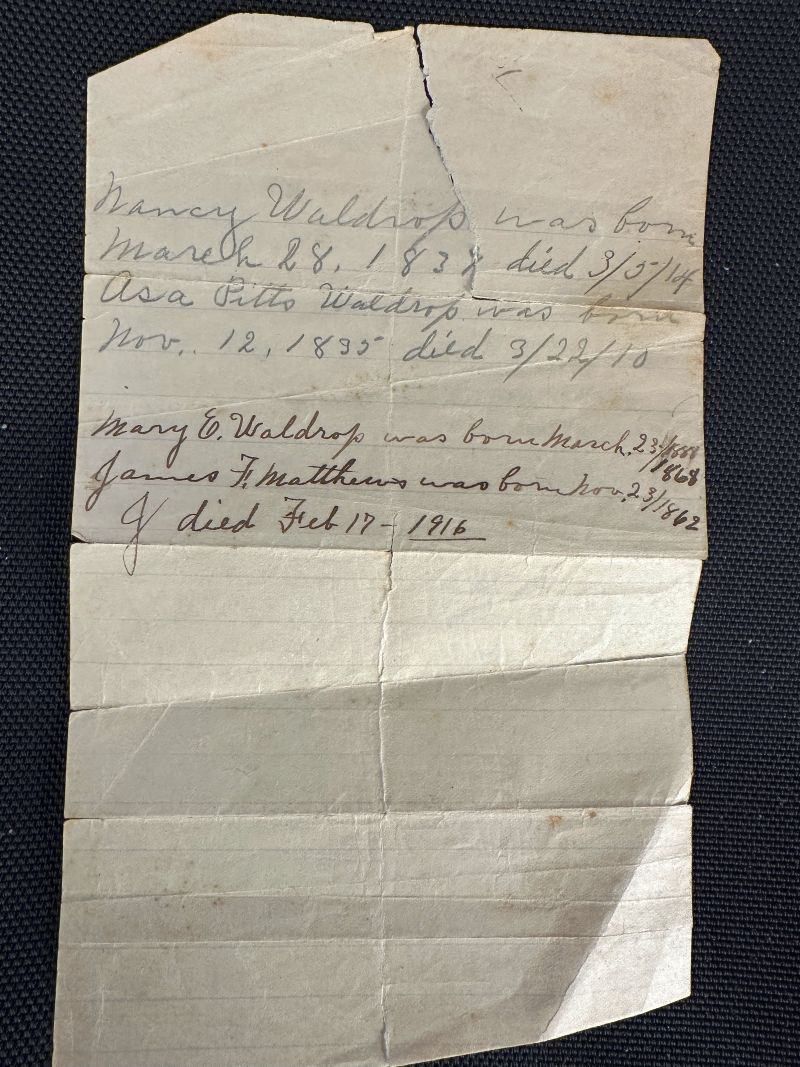 Nancy Waldrop was born
March 28, 1838 died 3/5/14
Asa Pitts Waldrop was born
Nov. 12, 1835 died 3/22/10
Mary E. Waldrop was born March, 23/
1868
James F. Matthews was born Nov, 23/1862
died Feb 17 - 1916